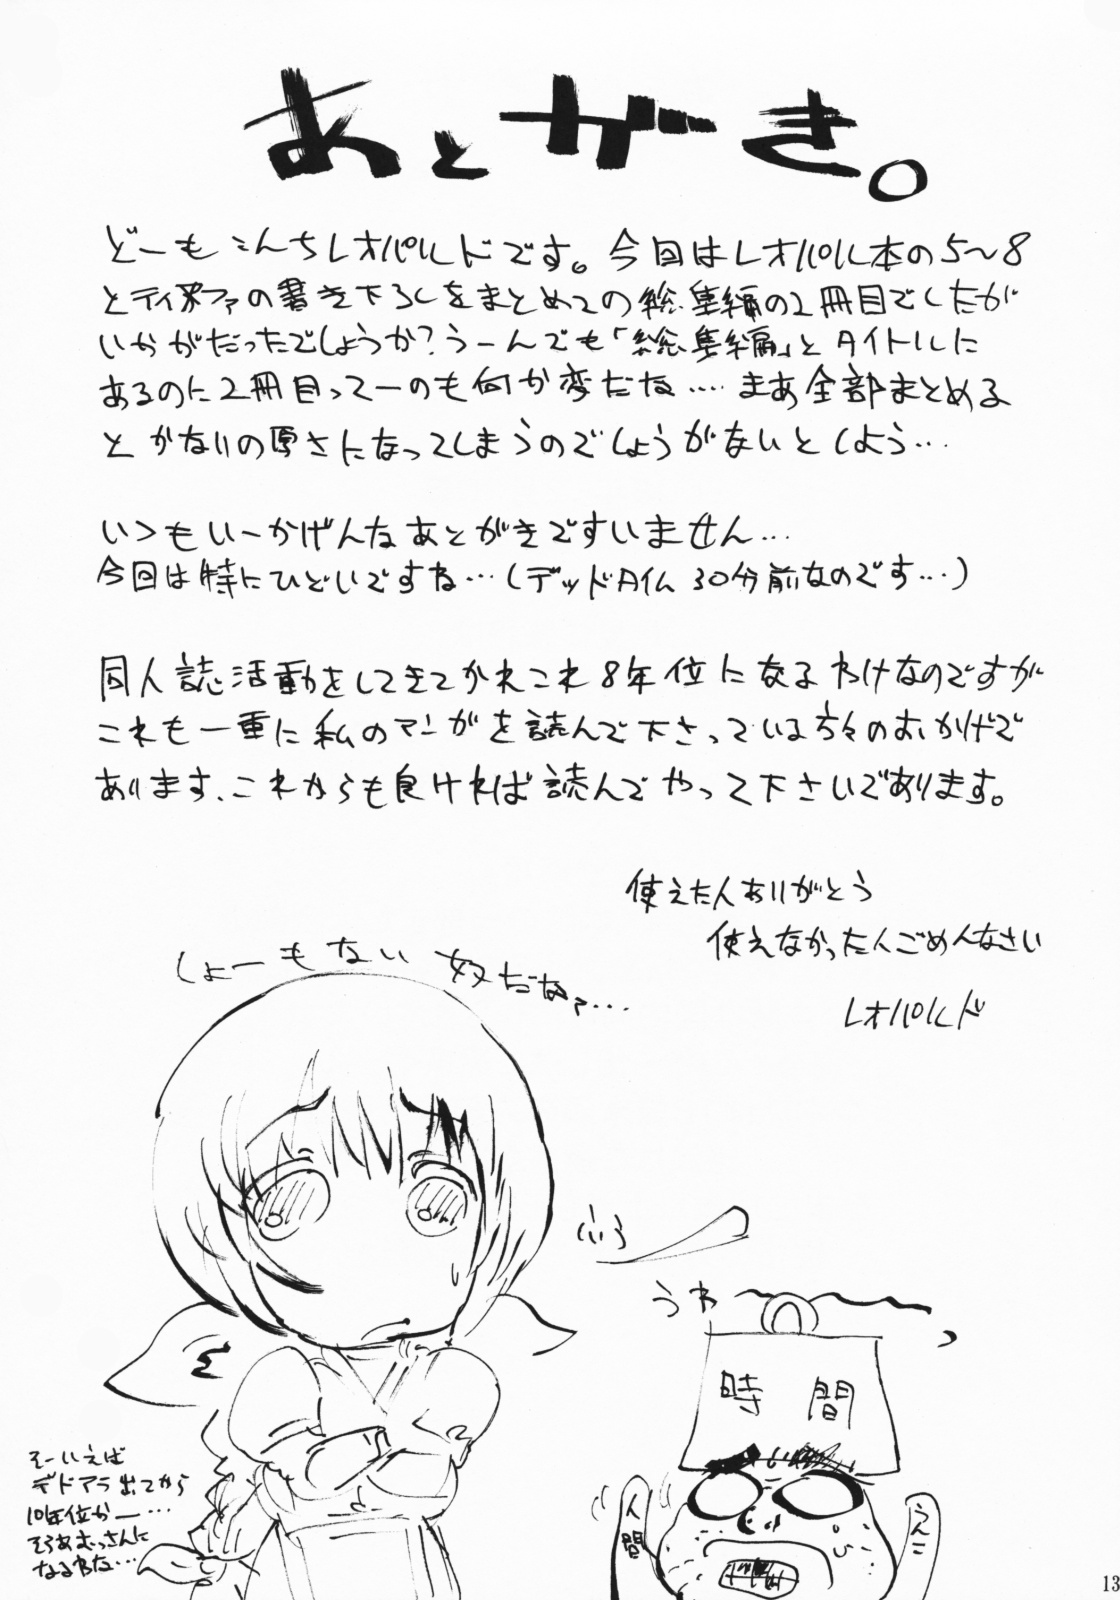 あとがき。
どーもこんちレオパルドです。今回はレオパル本の5〜8
とティファの書き下ろしをまとめての総集編の2冊目でしたが
いかがだったでしょうか?うーんでも「総集編」とタイトルに
あるのに2冊目ってーのも何か変だな....まあ全部まとめる
とかなりの厚さになってしまうのでしょうがないとしよう...
いつもいーかげんなあとがきですいません...
今回は特にひどいですね...(デッドタイム30分前なのです...)
同人誌活動をしてきてかれこれ8年位になるわけなのですが
これも一重に私のマンガを読んで下さっている方々のおかげで
あります、これからも良ければ読んでやって下さいであります。
使えた人ありがとう
使えなかった人ごめんなさい
レオパルド
しょーもない奴だなァ...
ふぅ
うわ
時間
人間
そーいえば
デドアラ出てから
10年位かー...
そろあむっさんに
なるわな...
13